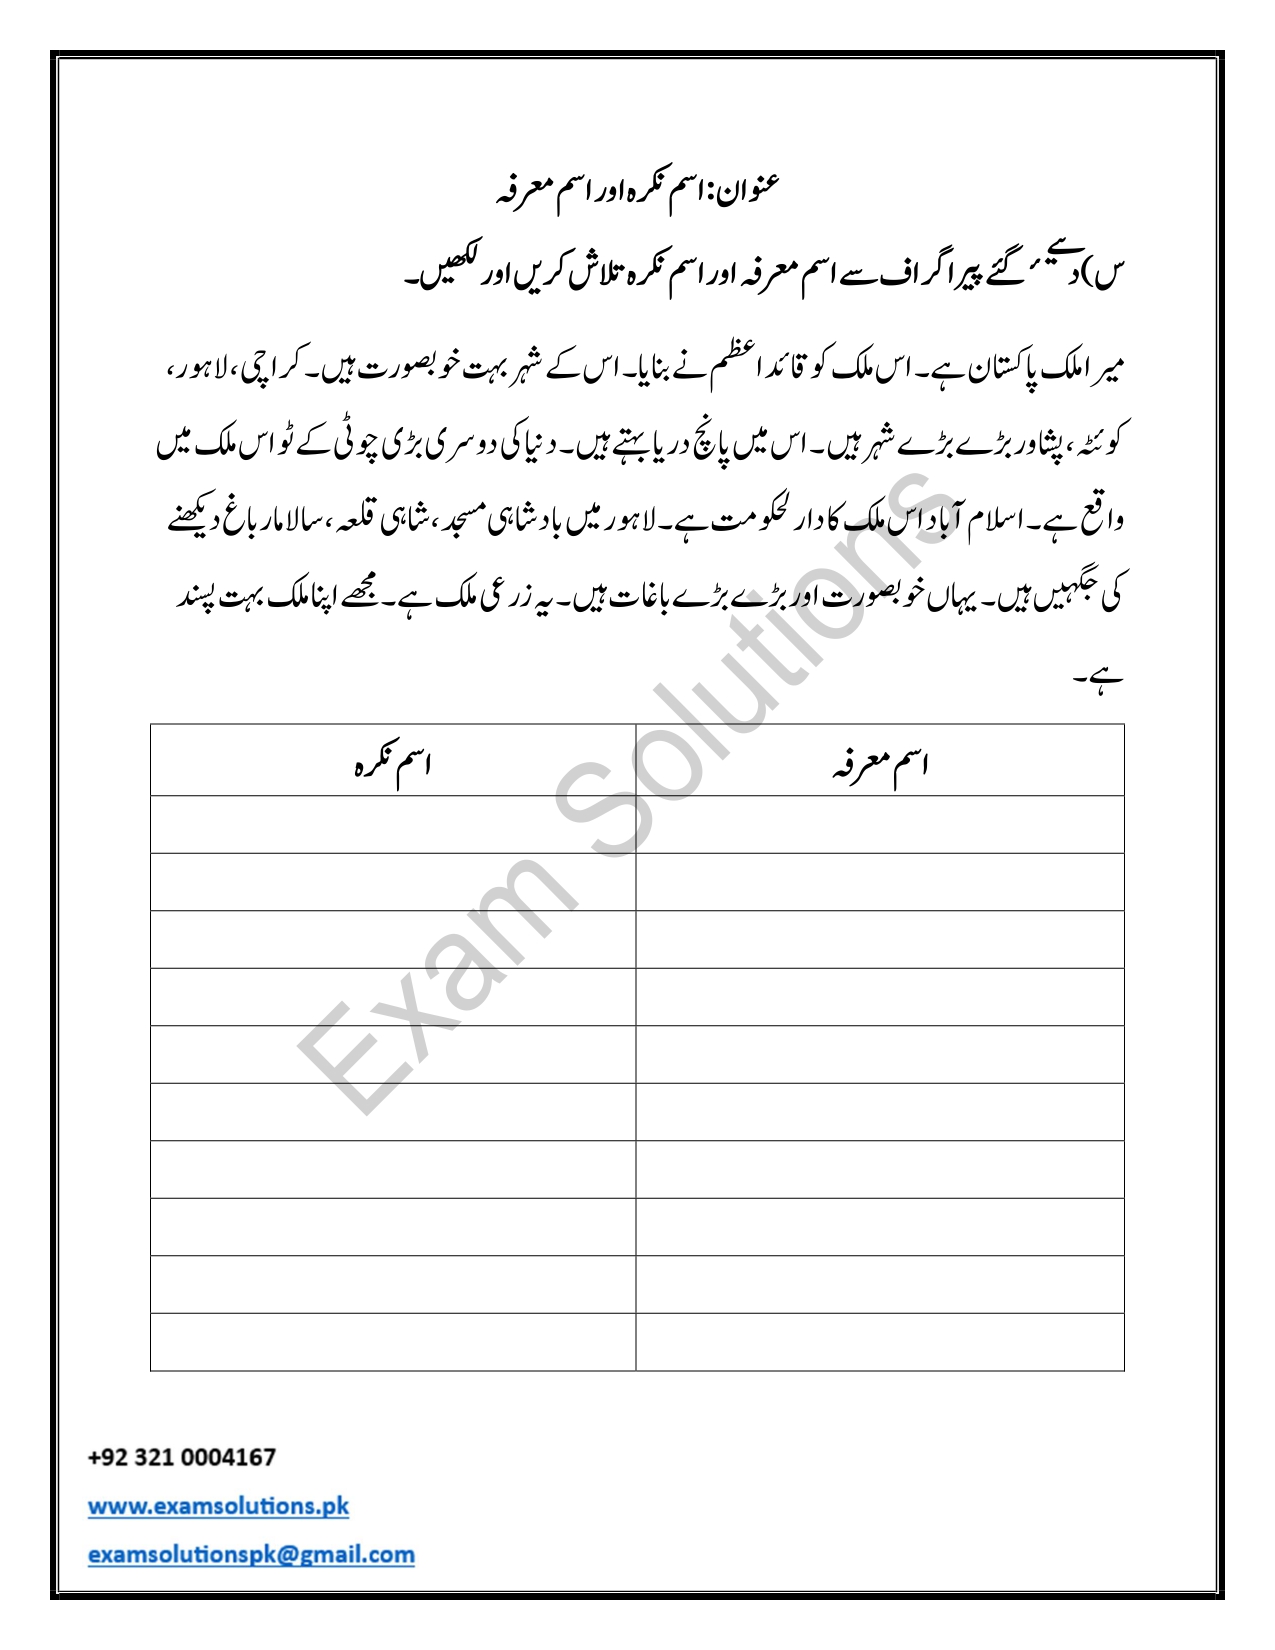 عنوان: اسم نکرہ اور اسم معرفہ
س) دیے گئے پیراگراف سے اسم معرفہ اور اسم نکرہ تلاش کریں اور لکھیں۔
میرا ملک پاکستان ہے۔ اس ملک کو قائد اعظم نے بنایا۔ اس کے شہر بہت خوبصورت ہیں۔ کراچی، لاہور،
کوئٹہ، پشاور بڑے بڑے شہر ہیں۔ اس میں پانچ دریا بہتے ہیں۔ دنیا کی دوسری بڑی چوٹی کے ٹو اس ملک میں
واقع ہے۔ اسلام آباد اس ملک کا دار لحکومت ہے۔ لاہور میں بادشاہی مسجد، شاہی قلعہ، سالامار باغ دیکھنے
کی جگہیں ہیں۔ یہاں خوبصورت اور بڑے بڑے باغات ہیں۔ یہ زرعی ملک ہے۔ مجھے اپنا ملک بہت پسند
ہے۔
اسم معرفہ اسم نکرہ
Exam Solutions
+92 321 0004167
www.examsolutions.pk
examsolutionspk@gmail.com